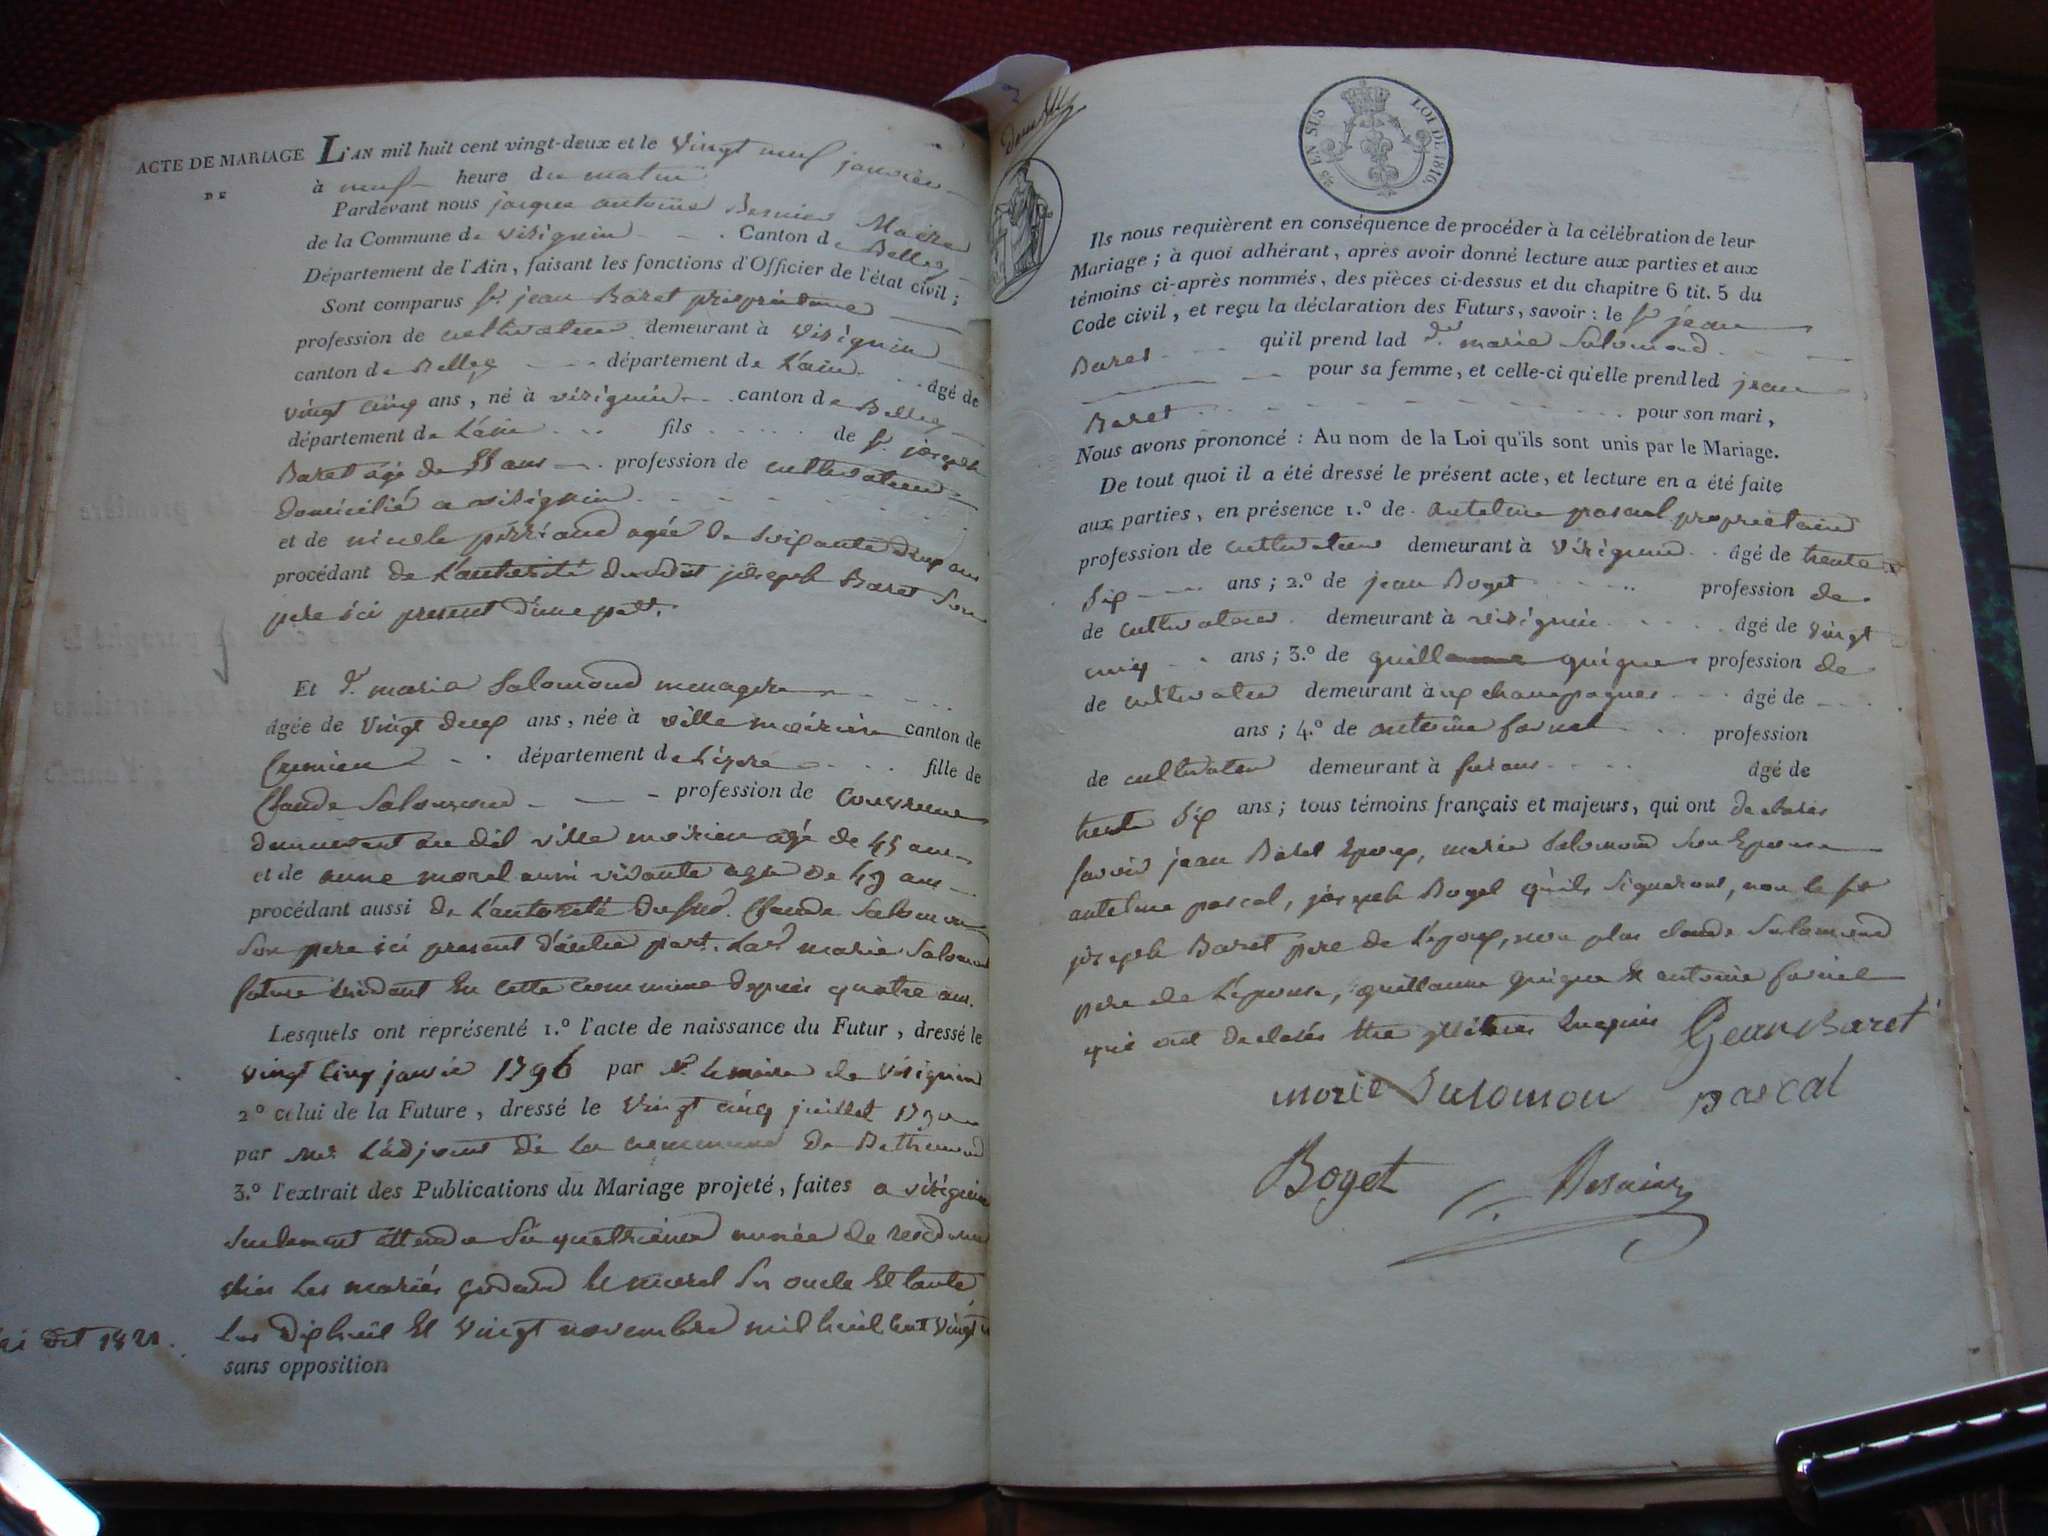 ACTE DE MARIAGE
DE
L'AN mil huit cent vingt-deux et le vingt neuf janvier
à neuf heure du matin
Pardevant nous jacque antoine Bernier Maire
de la Commune de virignin Canton de Belley
Département de l'Ain, faisant les fonctions d'Officier de l'état civil ;
Sont comparus Sr. jean Baret propriétaire
profession de cultivateur demeurant à virignin
canton de Belley département de L'ain âgé de
vingt cinq ans, né à virignin canton de Belley
département de L'ain fils de Sr. joseph
Baret agé de 55 ans profession de cultivateur
domicilié a virignin
et de nicole agée de soixante deux ans
procédant de L'autorité dudit joseph Baret son
pere ici présent d'une part.
Et De. marie Salomond menagere
âgée de vingt deux ans, née à ville moirieu canton de
Cremieu département de L'izere fille de
Claude Salomond profession de Couvreur
demeurant au dit ville moirieu agé de 45 ans
et de anne morel aussi vivante agée de 49 ans
procédant aussi de L'autorité dudit Claude Salomon
son pere ici present d'autre part. Lad. marie Salomond
future résidant en cette commune depuis quatre ans.
Lesquels ont représenté 1.º l'acte de naissance du Futur, dressé le
vingt cinq janvié 1796 par Mr. le maire de virignin
2º celui de la Future, dressé le vingt cinq juillet
par Mr. L'adjoint de la commune de
3.º l'extrait des Publications du Mariage projeté, faites a virignin
seulement attendu sa quatrieme année de résidence
chés les mariés et morel son oncle et tante
Les dix huit et vingt novembre mil huit cent vingt
dit 1821.
sans opposition
25 EN SUS
LOI DE 1816.
Ils nous requièrent en conséquence de procéder à la célébration de leur
Mariage ; à quoi adhérant, après avoir donné lecture aux parties et aux
témoins ci-après nommés, des pièces ci-dessus et du chapitre 6 tit. 5 du
Code civil, et reçu la déclaration des Futurs, savoir : le Sr jean
Baret qu'il prend lad De. marie Salomond
pour sa femme, et celle-ci qu'elle prend led jean
Baret pour son mari,
Nous avons prononcé : Au nom de la Loi qu'ils sont unis par le Mariage.
De tout quoi il a été dressé le présent acte, et lecture en a été faite
aux parties, en présence 1.º de antelme pascal propriétaire
profession de cultivateur demeurant à virignin âgé de trente
six ans ; 2.º de jean Boget profession de
de cultivateur demeurant à virignin âgé de vingt
cinq ans ; 3.º de guillaume guigue profession de
de cultivateur demeurant à champagne âgé de
ans ; 4.º de antoine fornel profession
de cultivateur demeurant à furans âgé de
trente six ans ; tous témoins français et majeurs, qui ont declarés
savoir jean Baret Epoux, marie Salomond son Epouse
antelme pascal, joseph Boget qu'ils signeront, non le sr
joseph Baret pere de L'epoux, non plus claude Salomond
pere de L'epouse, guillaume guigue et antoine fornel
qui ont declarés être illitérés Enquis Jean Baret
marie Salomon Pascal
Boget Bernier